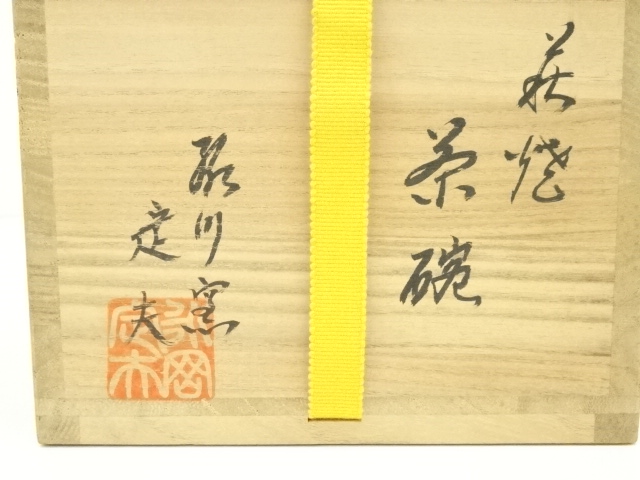 萩焼
茶碗
川窯
定夫